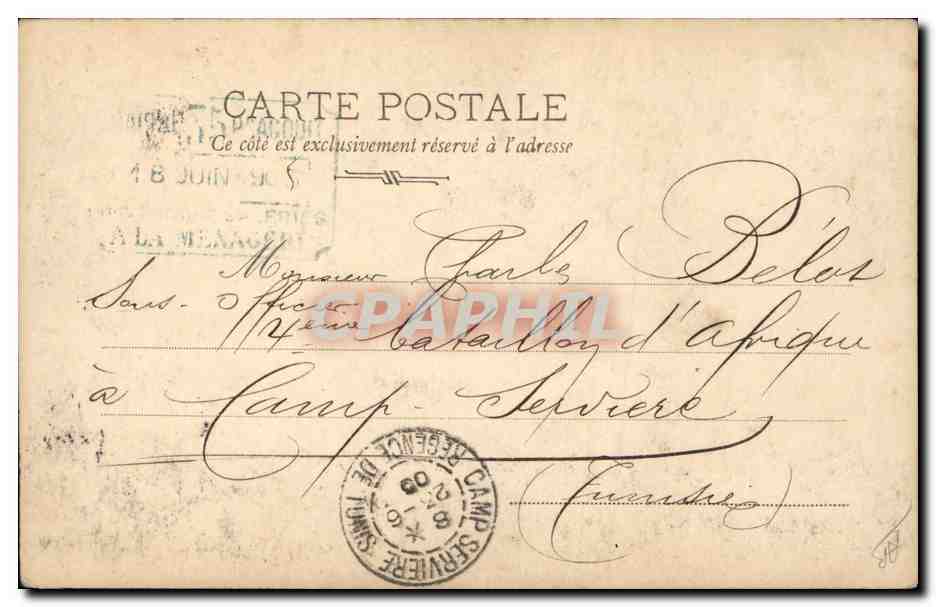 CARTE POSTALE
Ce côté est exclusivement réservé à l'adresse
18 JUIN 1905
A LA MÉNAGÈRE
Monsieur Charles Bélot
Sous-Officier
4ème bataillon d'Afrique
à Camp-Servière
Tunisie
CPAPHIL
CAMP SERVIERE
REGENCE DE TUNIS